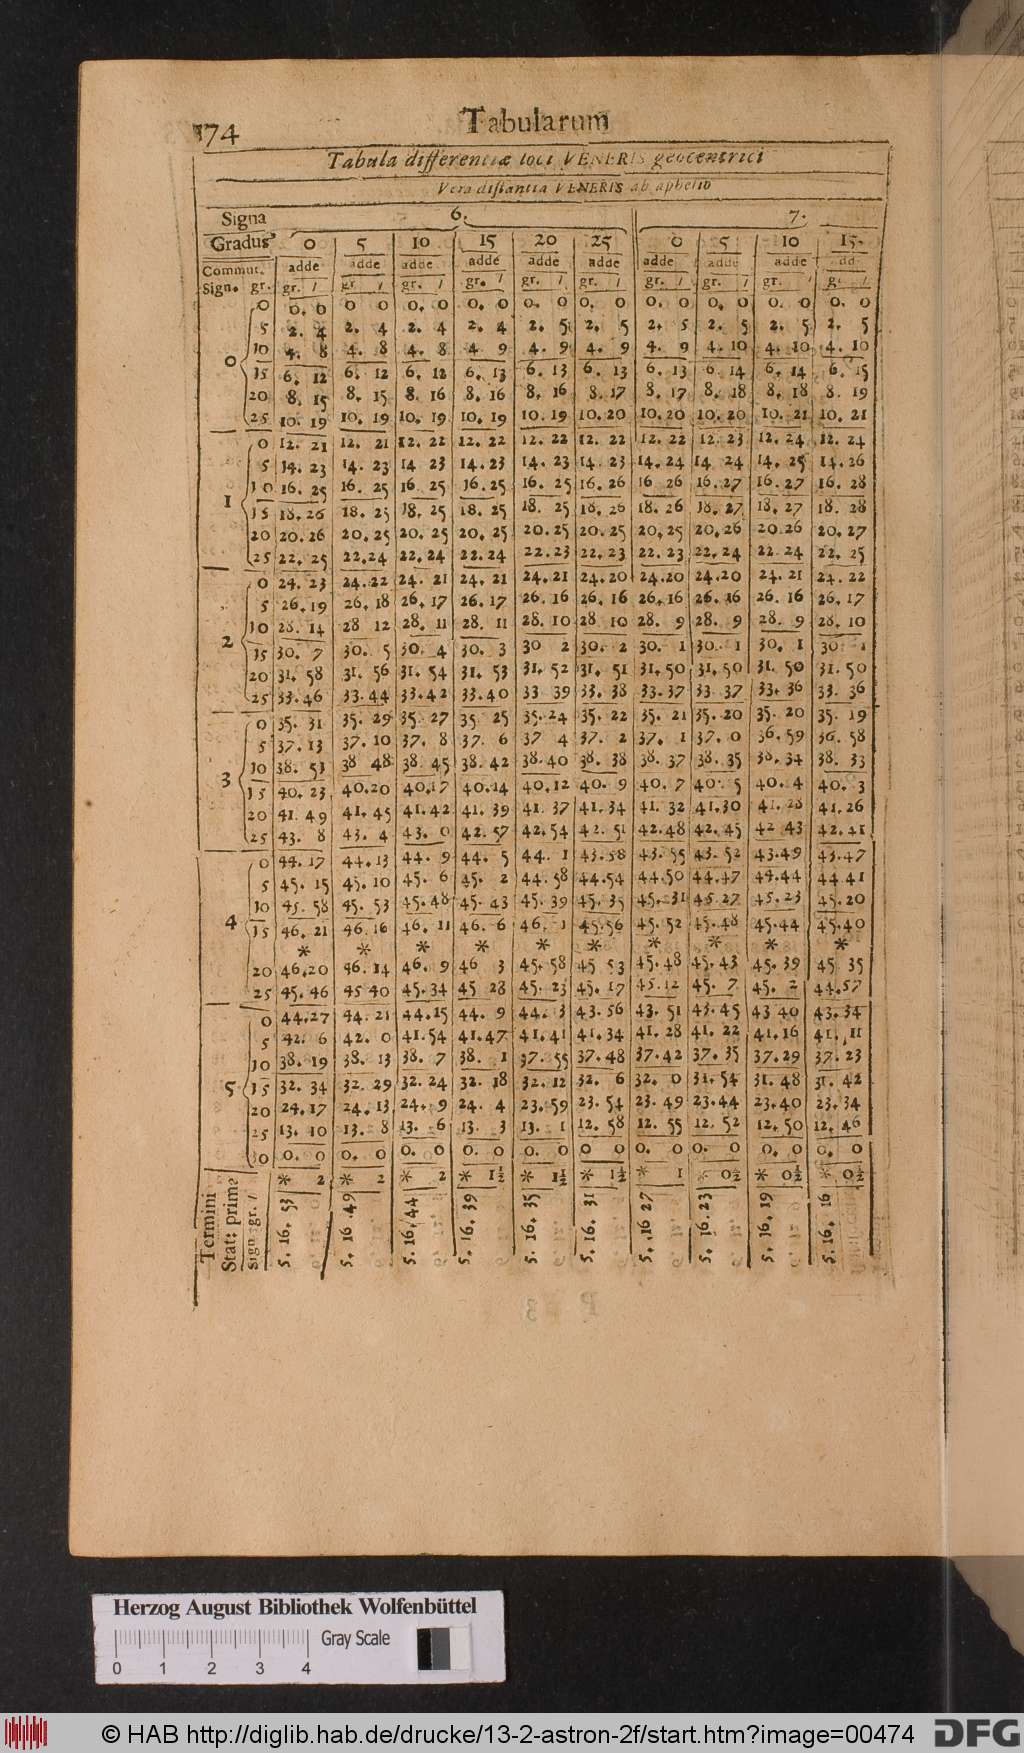 174 Tabularum
Tabula differentiæ loci VENERIS geocentrici
Vera distantia VENERIS ab aphelio
Signa 6. 7.
Gradus 0 5 10 15 20 25 0 5 10 15.
Commut. adde adde adde adde adde adde adde adde adde
Sign. gr. gr. / gr / gr. / gr. / gr. / gr. / gr. / gr. / gr. /
0 0. 0 0 0 0. 0 0. 0 0. 0 0. 0 0. 0 0. 0 0. 0 0. 0
5 2. 4 2. 4 2. 4 2. 4 2. 5 2. 5 2. 5 2. 5 2. 5 2. 5
0 10 4. 8 4. 8 4. 8 4 9 4. 9 4. 9 4. 9 4. 10 4. 10 4. 10
15 6. 12 6. 12 6. 12 6. 13 6. 13 6. 13 6. 13 6 14 6. 14 6. 15
20 8. 15 8. 15 8. 16 8. 16 8. 16 8. 17 8. 17 8. 18 8. 18 8. 19
25 10. 19 10. 19 10. 19 10. 19 10. 19 10. 20 10. 20 10. 20 10. 21 10. 21
0 12. 21 12. 21 12. 22 12. 22 12. 22 12. 22 12. 22 12. 23 12. 24 12. 24
5 14. 23 14. 23 14 23 14. 23 14. 23 14. 23 14. 24 14 24 14. 25 14. 26
1 10 16. 25 16. 25 16 25 16. 25 16. 25 16. 26 16 26 16. 27 16. 27 16. 28
15 18. 26 18. 25 18. 25 18. 25 18. 25 18. 26 18. 26 18. 27 18. 27 18. 28
20 20. 26 20. 25 20. 25 20. 25 20. 25 20. 25 20. 25 20. 26 20 26 20. 27
25 22. 25 22. 24 22. 24 22. 24 22. 23 22. 23 22. 23 22. 24 22 24 22. 25
0 24. 23 24. 22 24. 21 24. 21 24. 21 24. 20 24. 20 24. 20 24. 21 24. 22
5 26. 19 26. 18 26. 17 26. 17 26. 16 26. 16 26. 16 26. 16 26. 16 26. 17
2 10 28. 14 28 12 28. 11 28. 11 28. 10 28 10 28. 9 28. 9 28. 9 28. 10
15 30. 7 30. 5 30. 4 30. 3 30 2 30. 2 30. 1 30. 1 30. 1 30. 1
20 31. 58 31. 56 31. 54 31. 53 31. 52 31. 51 31. 50 31. 50 31. 50 31. 50
25 33. 46 33. 44 33. 42 33. 40 33 39 33. 38 33. 37 33 37 33. 36 33. 36
0 35. 31 35. 29 35. 27 35 25 35. 24 35. 22 35. 21 35. 20 35. 20 35. 19
5 37. 13 37. 10 37. 8 37. 6 37 4 37. 2 37. 1 37. 0 36. 59 36. 58
3 10 38. 51 38 48 38. 45 38. 42 38. 40 38. 38 38. 37 38. 35 38. 34 38. 33
15 40. 23 40. 20 40. 17 40. 14 40. 12 40. 9 40. 7 40. 5 40. 4 40. 3
20 41. 49 41. 45 41. 42 41. 39 41. 37 41. 34 41. 32 41. 30 41. 28 41. 26
25 43. 8 43. 4 43. 0 42. 57 42. 54 42. 51 42. 48 42. 45 42 43 42. 41
0 44. 17 44. 13 44. 9 44. 5 44. 1 43. 58 43. 55 43. 52 43. 49 43. 47
5 45. 15 45. 10 45. 6 45. 2 44. 58 44. 54 44. 50 44. 47 44. 44 44 41
10 45. 58 45. 53 45. 48 45. 43 45. 39 45. 35 45. 31 45 27 45. 23 45. 20
4 15 46. 21 46. 16 46. 11 46. 6 46. 1 45. 56 45. 52 45. 48 45. 44 45. 40
* * * * * * * * * *
20 46. 20 46. 14 46. 9 46 3 45. 58 45 53 45. 48 45. 43 45. 39 45 35
25 45. 46 45 40 45. 34 45 28 45. 23 45. 17 45. 12 45. 7 45. 2 44. 57
0 44. 27 44. 21 44. 15 44. 9 44. 3 43. 56 43. 51 43. 45 43 40 43. 34
5 42. 6 42. 0 41. 54 41. 47 41. 41 41. 34 41. 28 41. 22 41. 16 41. 11
10 38. 19 38. 13 38. 7 38. 1 37. 55 37. 48 37. 42 37. 35 37. 29 37. 23
5 15 32. 34 32. 29 32. 24 32. 18 32. 12 32. 6 32. 0 31. 54 31. 48 31. 42
20 24. 17 24. 13 24. 9 24. 4 23. 59 23. 54 23. 49 23. 44 23. 40 23. 34
25 13. 10 13. 8 13. 6 13. 3 13. 1 12. 58 12. 55 12. 52 12. 50 12. 46
0 0. 0 0. 0 0. 0 0. 0 0. 0 0 0 0. 0 0. 0 0. 0 0. 0
* 2 * 2 * 2 * 1½ * 1½ * 1½ * 1 * 0½ * 0½ * 0½
Termini
Stat: primæ
Sign. gr. /
5. 16. 53 5. 16. 49 5. 16. 44 5. 16. 39 5. 16. 35 5. 16. 31 5. 16 27 5. 16. 23 5. 16. 19 5. 16. 16
Herzog August Bibliothek Wolfenbüttel
Gray Scale
0 1 2 3 4
© HAB http://diglib.hab.de/drucke/13-2-astron-2f/start.htm?image=00474
DFG